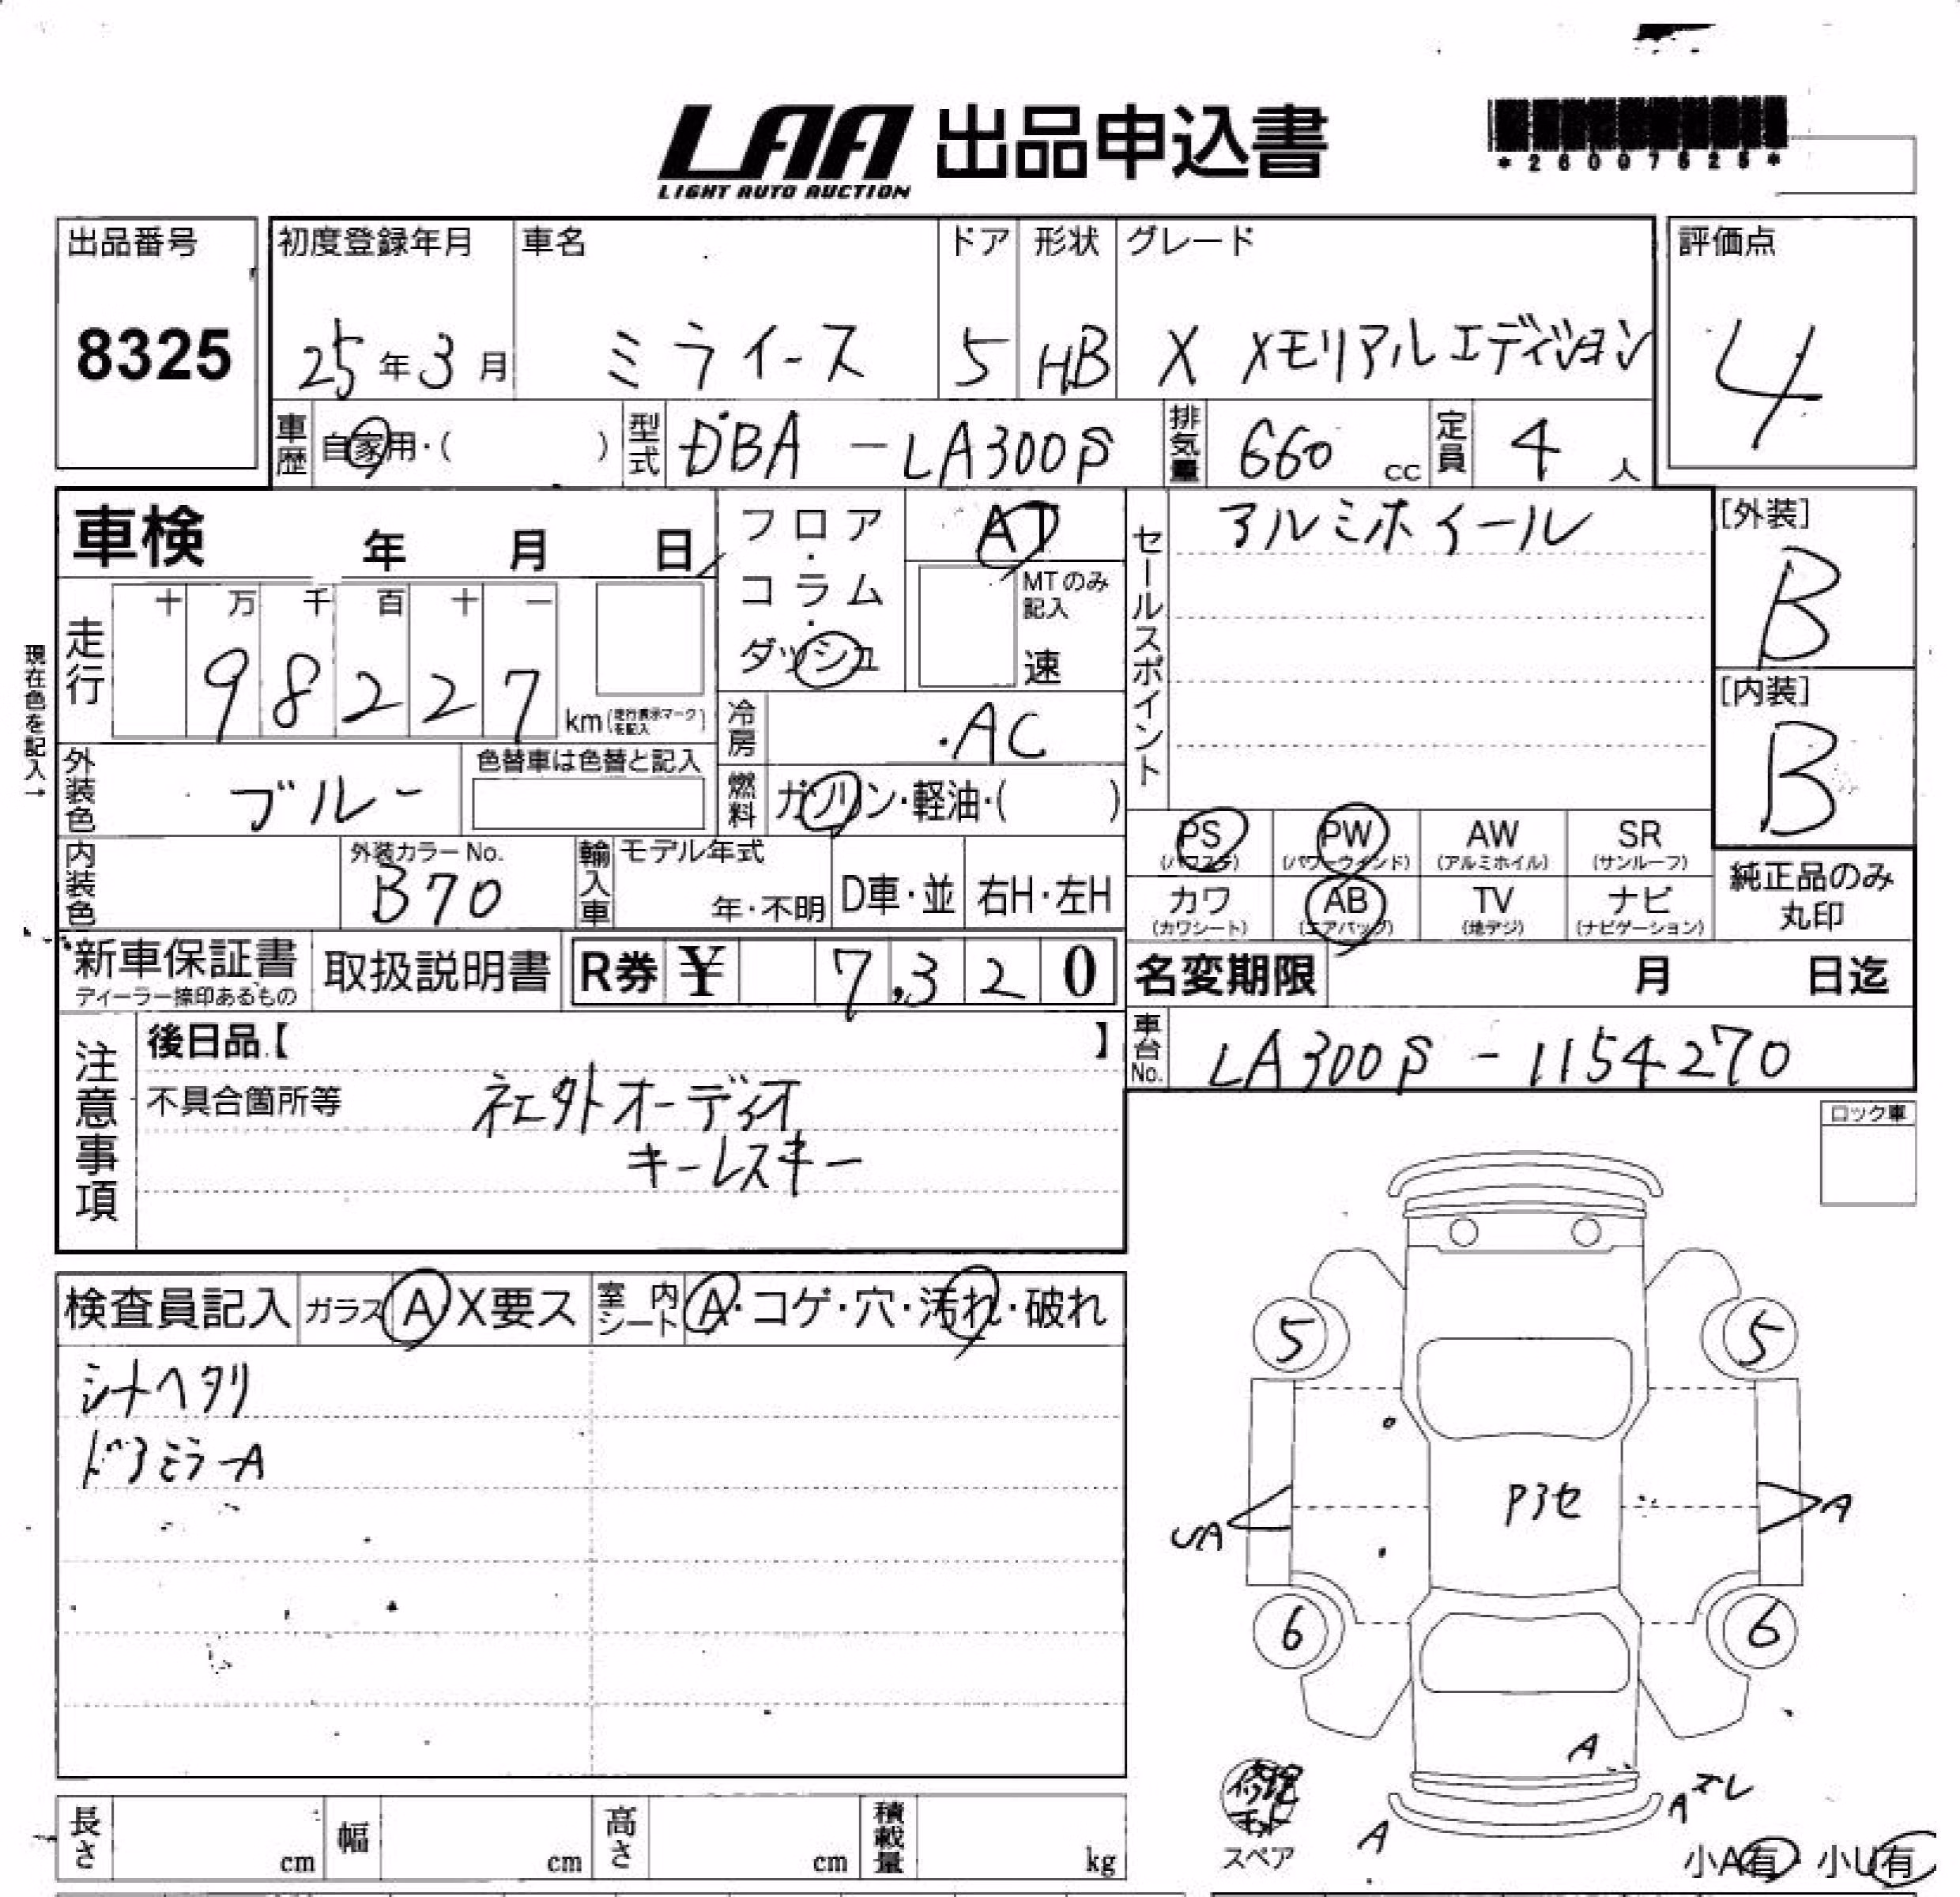 LAA 出品申込書
LIGHT AUTO AUCTION
*26007525*
出品番号
8325
初度登録年月 車名 ドア 形状 グレード
25年3月 ミライース 5 HB X メモリアルエディション
評価点
4
車歴 自家用・( ) 型式 DBA-LA300S 排気量 660 cc 定員 4 人
車検 年 月 日
フロア・コラム・ダッシュ
AT
MTのみ記入
速
セールスポイント
アルミホイール
[外装]
B
[内装]
B
現在色を記入→
走行 十 万 千 百 十 一
98227 km(走行表示マークを記入)
冷房 AC
外装色 ブルー
色替車は色替と記入
燃料 ガソリン・軽油・( )
PS (パワステ) PW (パワーウィンド) AW (アルミホイル) SR (サンルーフ)
カワ (カワシート) AB (エアバッグ) TV (地デジ) ナビ (ナビゲーション)
純正品のみ
丸印
内装色 外装カラーNo. B70
輸入車 モデル年式 年・不明 D車・並 右H・左H
新車保証書
ディーラー捺印あるもの
取扱説明書
R券 ¥ 7,320
名変期限 月 日迄
車台No. LA300S-1154270
注意事項
後日品【 】
不具合箇所等 社外オーディオ
キーレスキー
ロック車
検査員記入 ガラス A X要ス 室内シート A・コゲ・穴・汚れ・破れ
シートヘタリ
ドアミラーA
5 5
Pアセ
UA A
6 6
A
A ズレ
A
スペア
小A有・小U有
長さ cm 幅 cm 高さ cm 積載量 kg